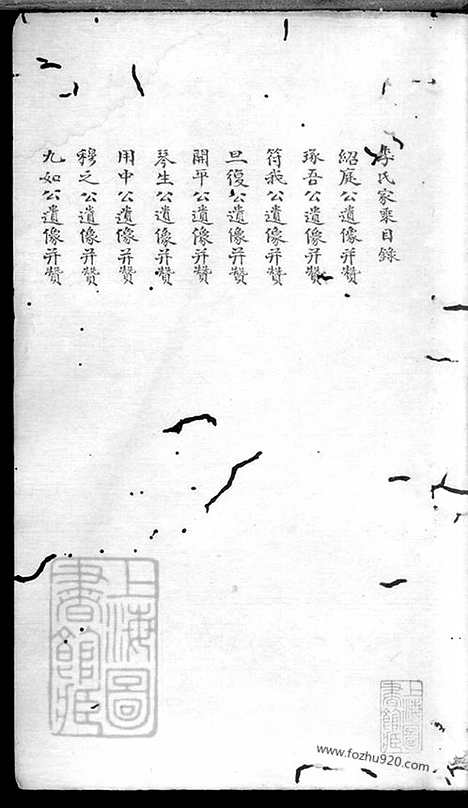 李氏家乘目錄
紹庭公遺像并贊
琢吾公遺像并贊
符我公遺像并贊
旦復公遺像并贊
開平公遺像并贊
琴生公遺像并贊
用中公遺像并贊
穆之公遺像并贊
九如公遺像并贊
上海圖
書館藏
上海圖
書館藏
www.fozhu920.com